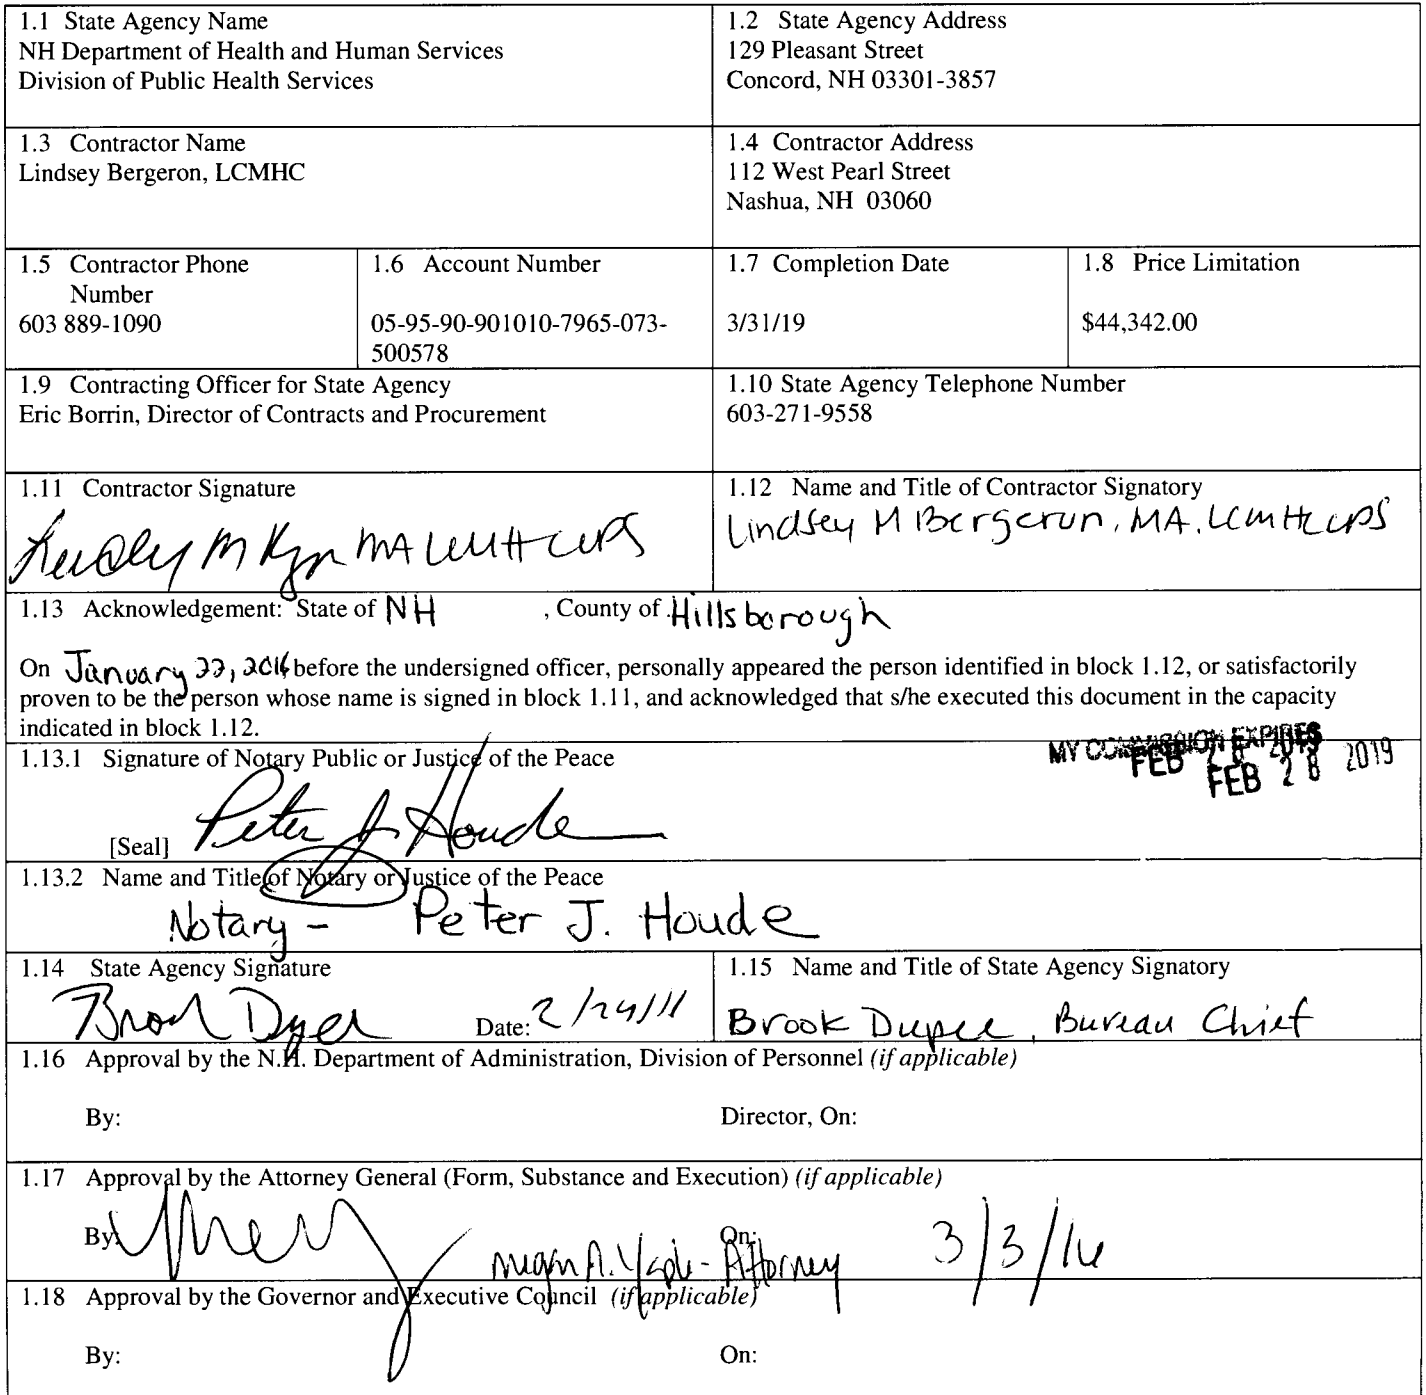 1.1 State Agency Name
NH Department of Health and Human Services
Division of Public Health Services
1.2 State Agency Address
129 Pleasant Street
Concord, NH 03301-3857
1.3 Contractor Name
Lindsey Bergeron, LCMHC
1.4 Contractor Address
112 West Pearl Street
Nashua, NH 03060
1.5 Contractor Phone
Number
603 889-1090
1.6 Account Number
05-95-90-901010-7965-073-
500578
1.7 Completion Date
3/31/19
1.8 Price Limitation
$44,342.00
1.9 Contracting Officer for State Agency
Eric Borrin, Director of Contracts and Procurement
1.10 State Agency Telephone Number
603-271-9558
1.11 Contractor Signature
1.12 Name and Title of Contractor Signatory
Lindsey M Bergeron, MA, LCMHC
1.13 Acknowledgement: State of NH , County of Hillsborough
On January 22, 2016 before the undersigned officer, personally appeared the person identified in block 1.12, or satisfactorily
proven to be the person whose name is signed in block 1.11, and acknowledged that s/he executed this document in the capacity
indicated in block 1.12.
1.13.1 Signature of Notary Public or Justice of the Peace
MY COMMISSION EXPIRES
FEB 28 2019
[Seal] Peter J Houde
1.13.2 Name and Title of Notary or Justice of the Peace
Notary - Peter J. Houde
1.14 State Agency Signature
Date: 2/24/
1.15 Name and Title of State Agency Signatory
Brook Dupee, Bureau Chief
1.16 Approval by the N.H. Department of Administration, Division of Personnel (if applicable)
By: Director, On:
1.17 Approval by the Attorney General (Form, Substance and Execution) (if applicable)
By: Megan A. - Attorney On: 3/3/16
1.18 Approval by the Governor and Executive Council (if applicable)
By: On: